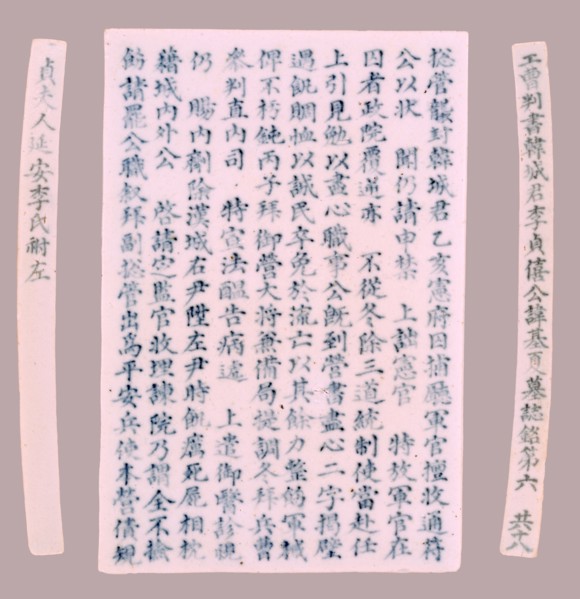 工曹判書韓城君李貞僖公諱基夏墓誌銘第六 共十八
捴管襲封韓城君乙亥憲府因捕廳軍官擅收通符
公以狀 聞仍請申禁 上詘憲官 特放軍官在
囚者政院覆逆亦 不從冬除三道統制使當赴任
上引見勉以盡心職事公旣到營書盡心二字揭壁
過飢賙恤以誠民卒免於流亡以其餘力整飭軍械
俾不朽鈍丙子拜御營大將兼備局提調冬拜兵曹
叅判直內司 特宣法醞告病遞 上遣御醫診視
仍 賜內劑除漢城右尹陞左尹時飢癘死屍相枕
藉城內外公 啓請定監官收埋諫院乃謂全不掩
飭請罷公職敍拜副捴管出爲平安兵使本營債規
貞夫人延安李氏祔左